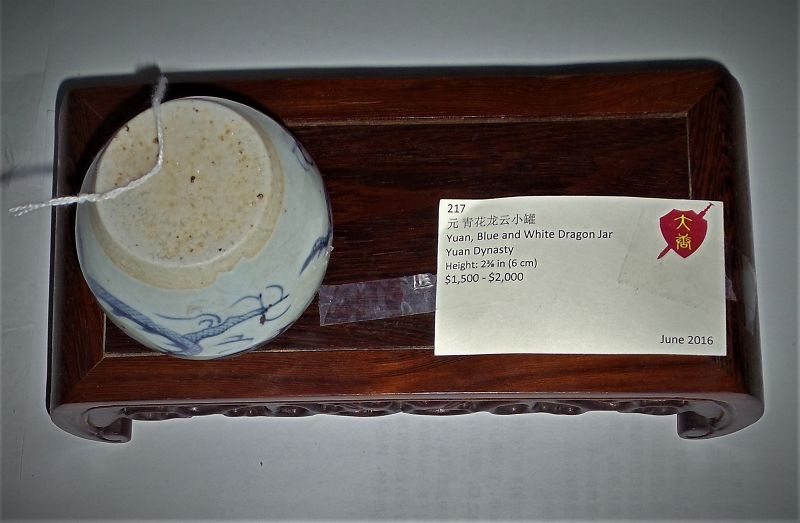 217
元 青花龙云小罐
Yuan, Blue and White Dragon Jar
Yuan Dynasty
Height: 2⅜ in (6 cm)
$1,500 - $2,000
June 2016